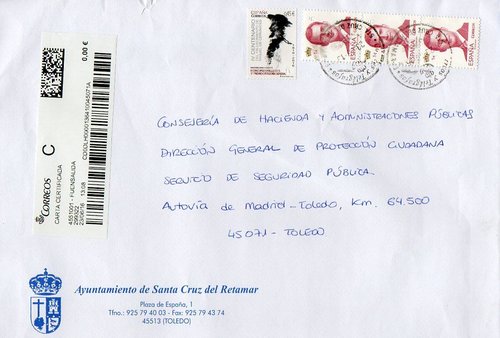 0,00 €
CORREOS
C
CARTA CERTIFICADA
4551001 - FUENSALIDA
23/06/16 13:08
ESPAÑA
CORREOS
ESPAÑA
ESPAÑA
ESPAÑA
CONSEJERÍA DE HACIENDA Y ADMINISTRACIONES PÚBLICAS
DIRECCIÓN GENERAL DE PROTECCIÓN CIUDADANA
SERVICIO DE SEGURIDAD PÚBLICA
AUTOVÍA de Madrid-Toledo, Km. 64.500
45071 - TOLEDO
Ayuntamiento de Santa Cruz del Retamar
Plaza de España, 1
Tfno.: 925 79 40 03 - Fax: 925 79 43 74
45513 (TOLEDO)